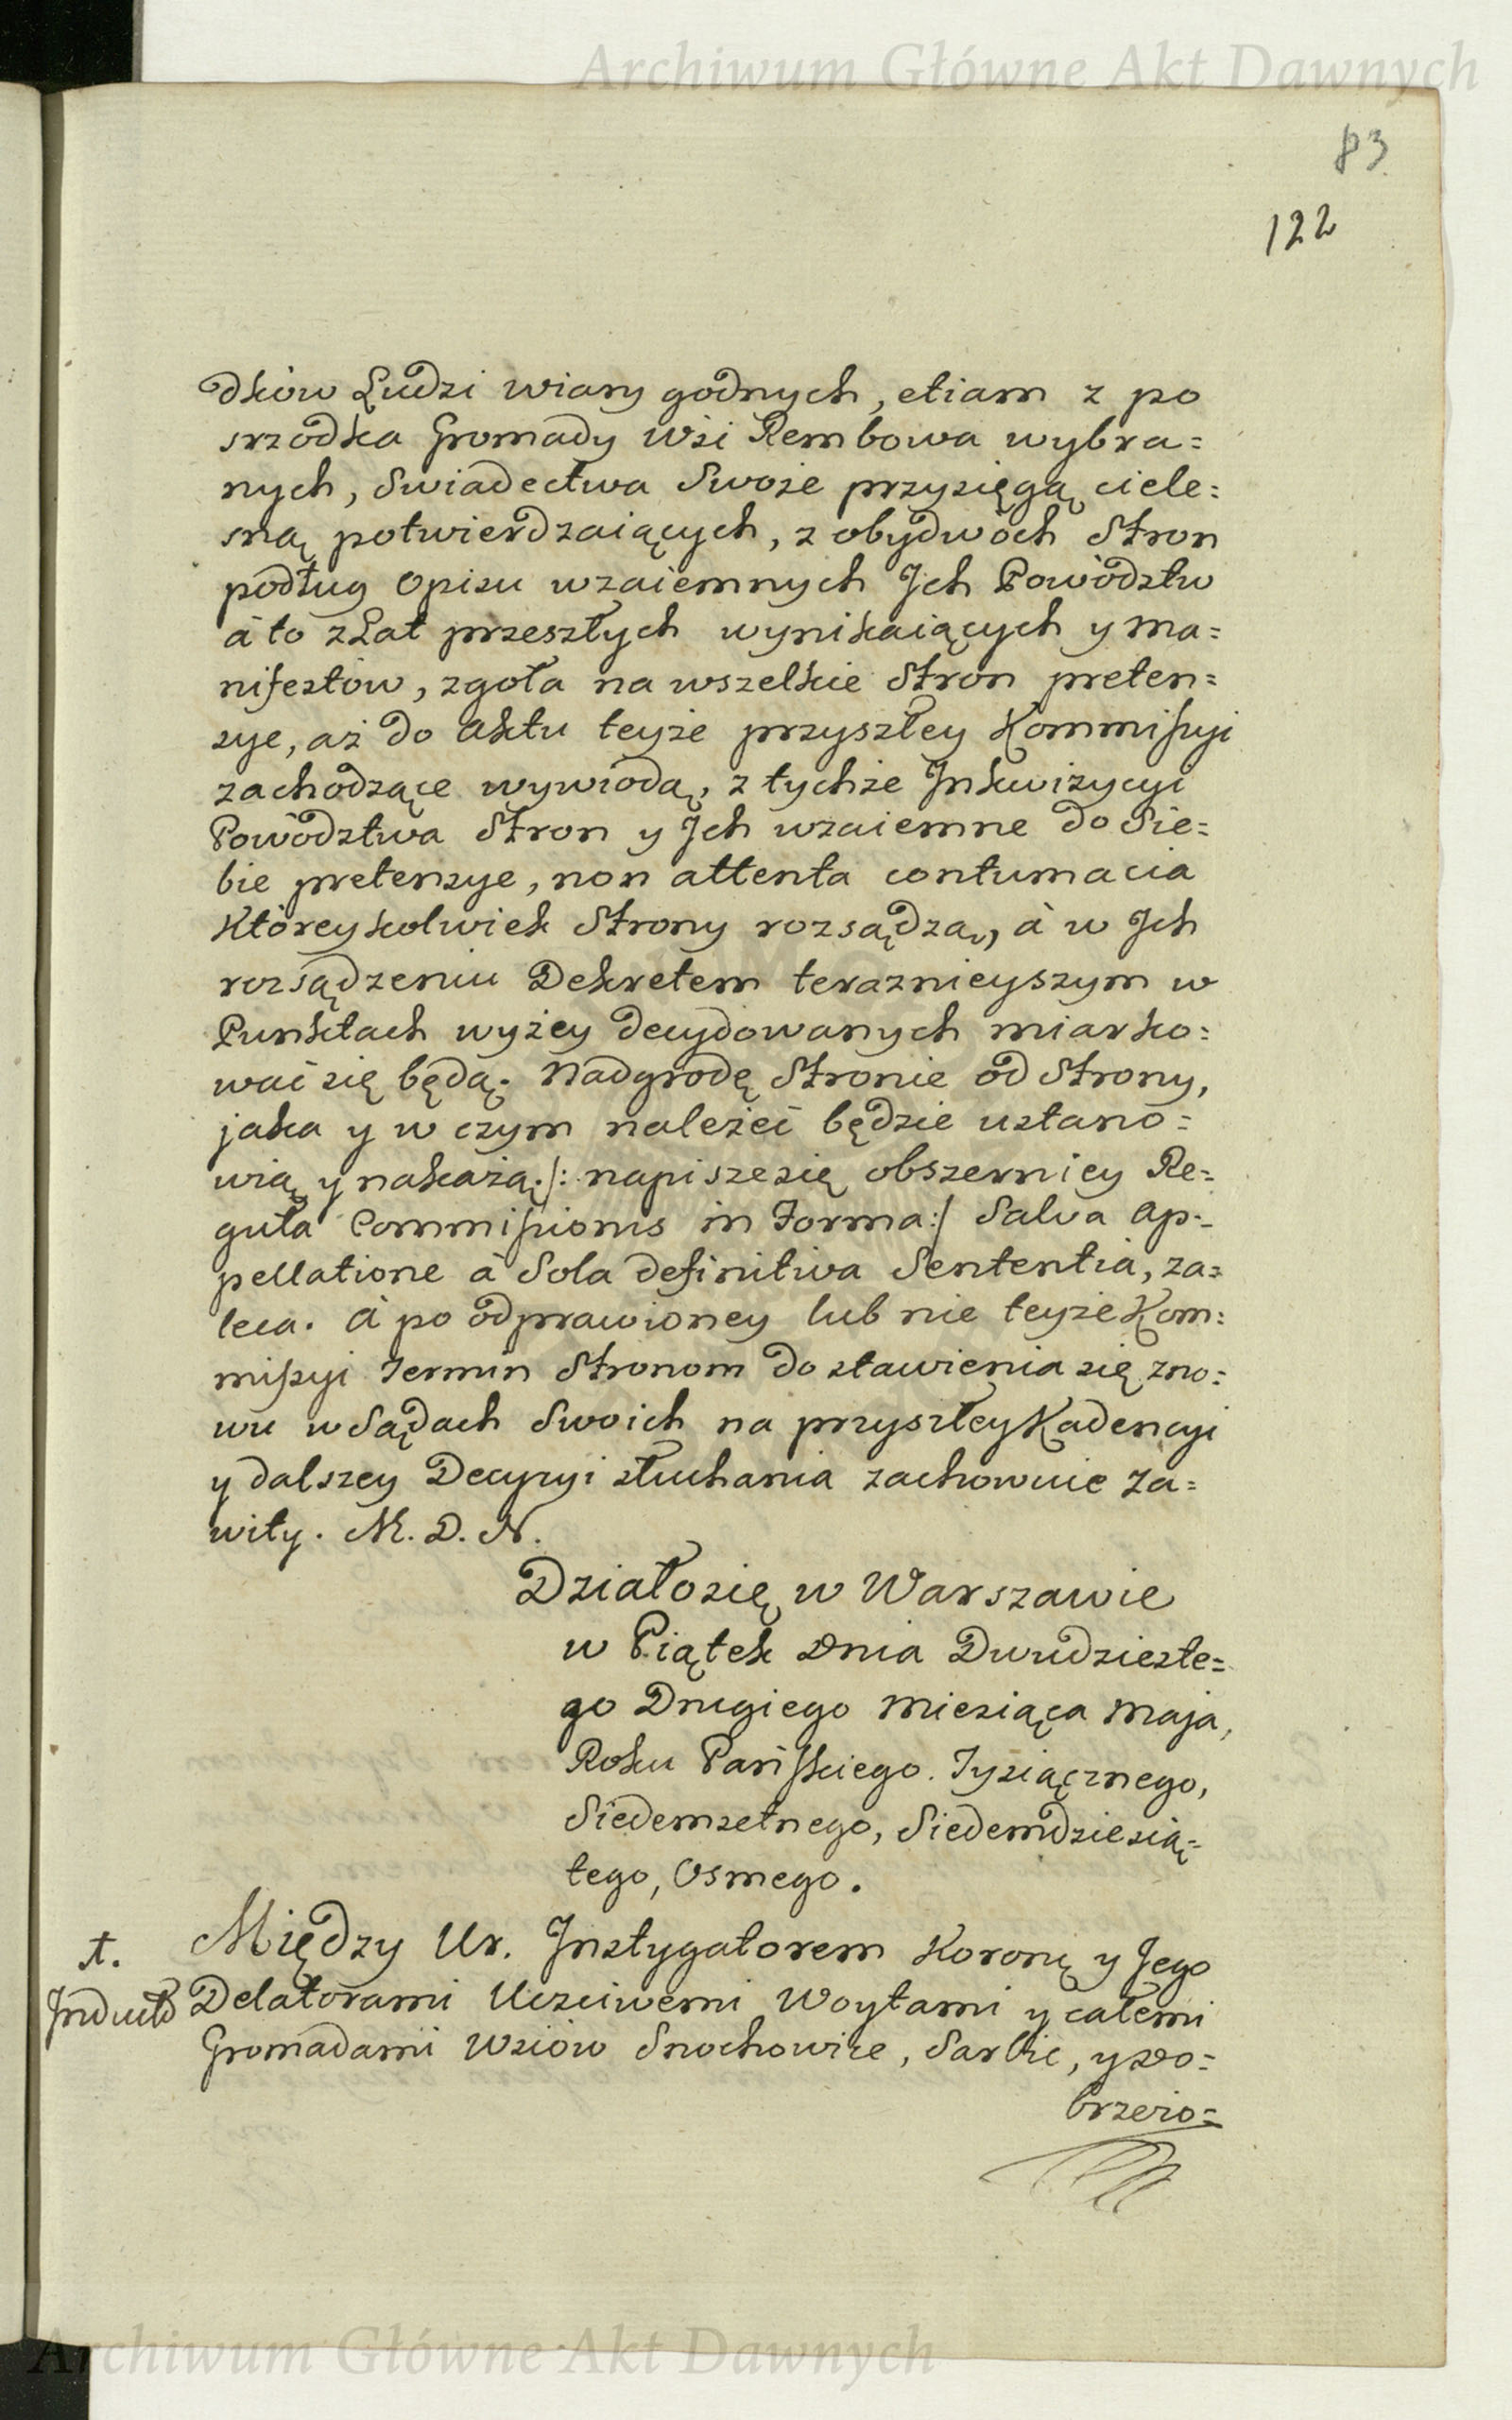 Archiwum Główne Akt Dawnych
83
122
dków Ludzi wiary godnych, etiam z po
srzodka Gromady Wsi Rembowa wybra=
nych, Swiadectwa Swoie przysięgą ciele=
sną potwierdzaiących, z obydwóch Stron
podług Opisu wzaiemnych Jch Powództw
à to z Lat przeszłych wynikaiących y Ma=
nifestów, zgoła na wszelkie Stron preten=
sye, aż do Aktu teyże przyszłey Kommissyi
zachodzące wywiodą, z tychże Jnkwizycyi
Powództwa Stron y Jch wzaiemne do Sie=
bie pretensye, non attenta contumacia
Któreykolwiek Strony rozsądzą, à w Jch
rozsądzeniu Dekretem teraznieyszym w
Punktach wyżey decydowanych miarko=
wać się będą. Nadgrodę Stronie od Strony,
jaka y w czym należeć będzie ustano=
wią y nakażą./: napisze się obszerniey Re=
guła Commissionis in Forma:/ Salva Ap=
pellatione à Sola definitiva Sententia, za=
leca. à po odprawioney lub nie teyże Kom=
missyi Termin Stronom do stawienia się zno=
wu w Sądach Swoich na przyszłey Kadencyi
y dalszey Decyzyi słuchania zachowuie Za=
wity. M. D. N.
Działo się w Warszawie
w Piątek Dnia Dwudzieste=
go Drugiego Miesiąca Maja,
Roku Pańskiego. Tysiącznego,
Siedemsetnego, Siedemdziesią=
tego, Osmego.
t. Między Ur. Jnstygatorem Koronn̨ y Jego
Jnducto Delatorami Uczciwemi Woytami y całemi
Gromadami Wsiów Snochowice, Sarbic, y Do=
brzeio=
Archiwum Główne Akt Dawnych